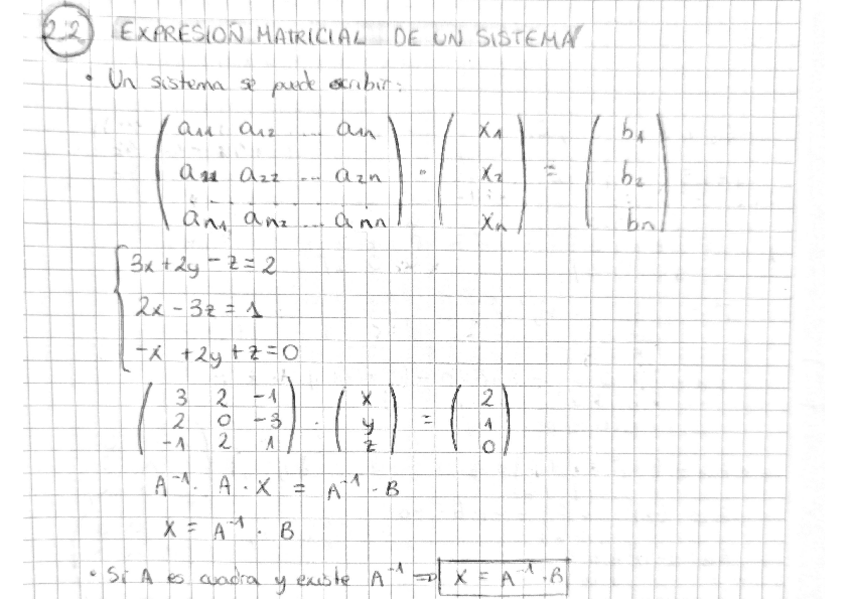 2.2 EXPRESION MATRICIAL DE UN SISTEMA
• Un sistema se puede escribir:
( a11 a12 ... a1n ) ( x1 ) ( b1 )
( a21 a22 ... a2n ) · ( x2 ) = ( b2 )
( an1 an2 ... ann ) ( xn ) ( bn )
{ 3x + 2y - z = 2
2x - 3z = 1
-x + 2y + z = 0
( 3 2 -1 ) ( x ) ( 2 )
( 2 0 -3 ) · ( y ) = ( 1 )
( -1 2 1 ) ( z ) ( 0 )
A⁻¹ · A · X = A⁻¹ · B
X = A⁻¹ · B
• Si A es cuadra y existe A⁻¹ ⇒ X = A⁻¹ · B